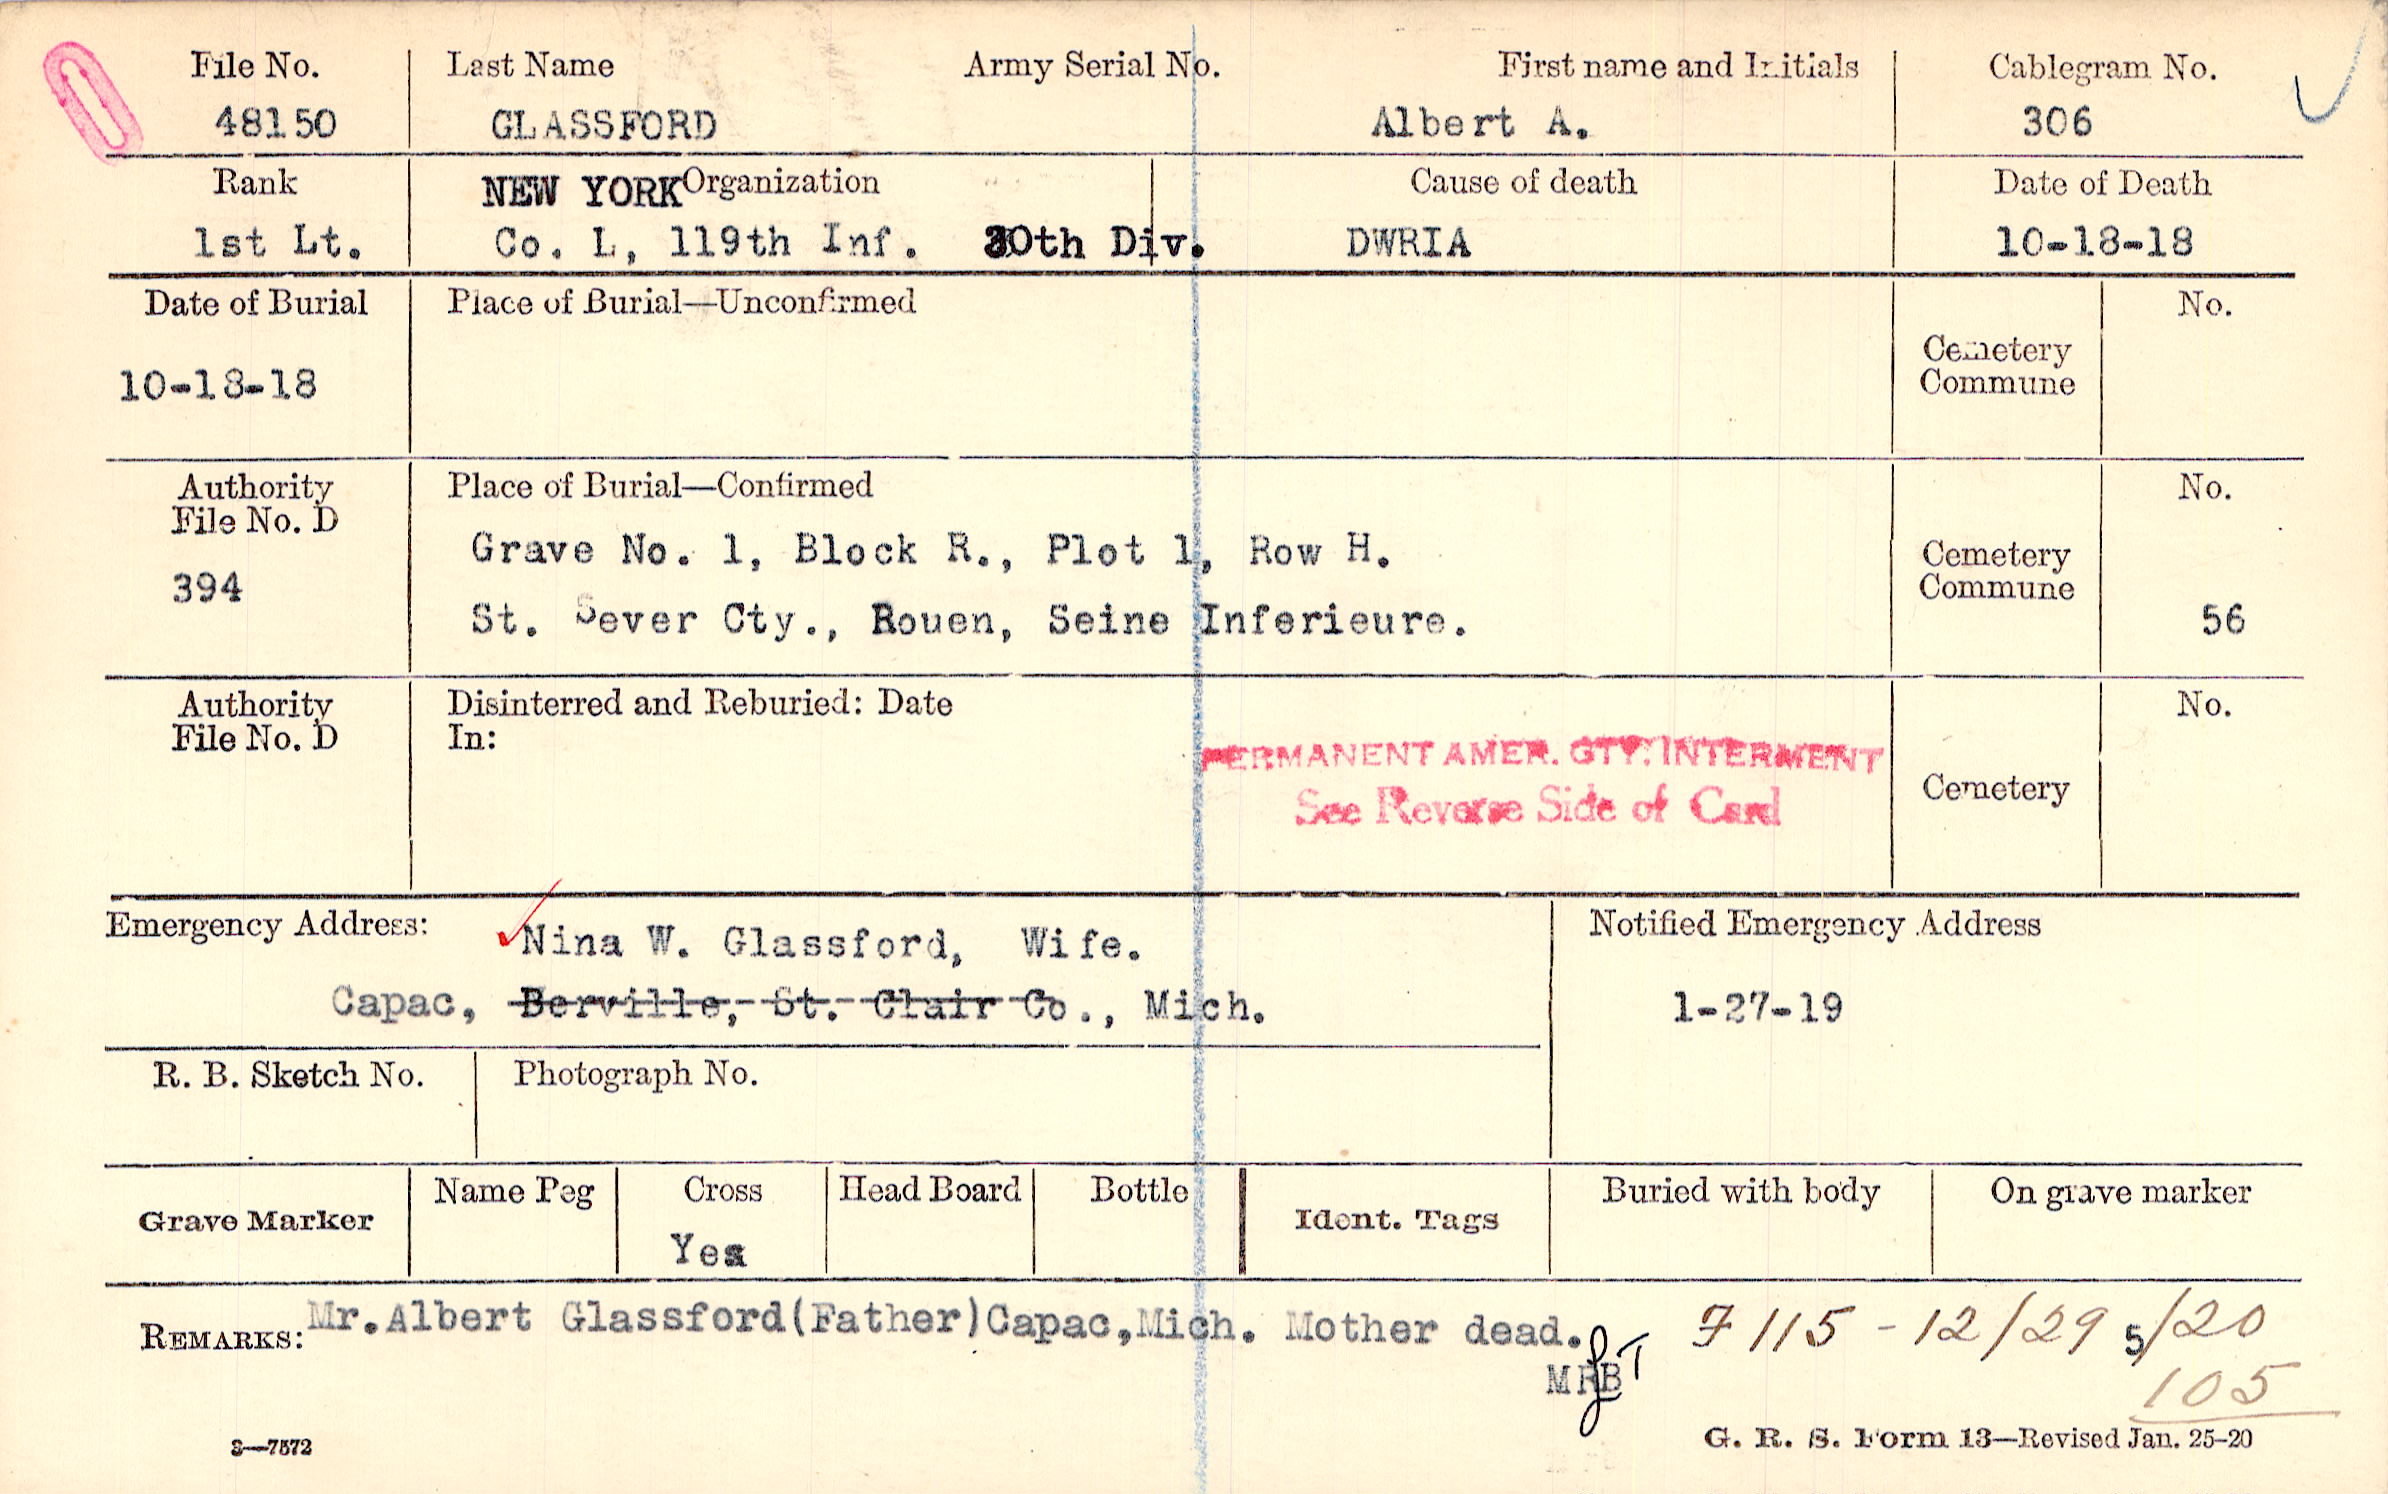 File No. Last Name Army Serial No. First name and Initials Cablegram No.
48150 GLASSFORD Albert A. 306
Rank NEW YORK Organization Cause of death Date of Death
1st Lt. Co. L, 119th Inf. 30th Div. DWRIA 10-18-18
Date of Burial Place of Burial—Unconfirmed No.
Cemetery
Commune
10-18-18
Authority Place of Burial—Confirmed No.
File No. D
Grave No. 1, Block R., Plot 1, Row H. Cemetery
394 Commune
St. Sever Cty., Rouen, Seine Inferieure. 56
Authority Disinterred and Reburied: Date No.
File No. D In:
PERMANENT AMER. CTY. INTERMENT
See Reverse Side of Card Cemetery
Emergency Address: Nina W. Glassford, Wife. Notified Emergency Address
Capac, Berville, St. Clair Co., Mich. 1-27-19
R. B. Sketch No. Photograph No.
Name Peg Cross Head Board Bottle Buried with body On grave marker
Grave Marker Ident. Tags
Yes
REMARKS: Mr.Albert Glassford(Father)Capac,Mich. Mother dead. 7 115 - 12/29 5/20
105
3—7572 G. R. S. Form 13—Revised Jan. 25-20